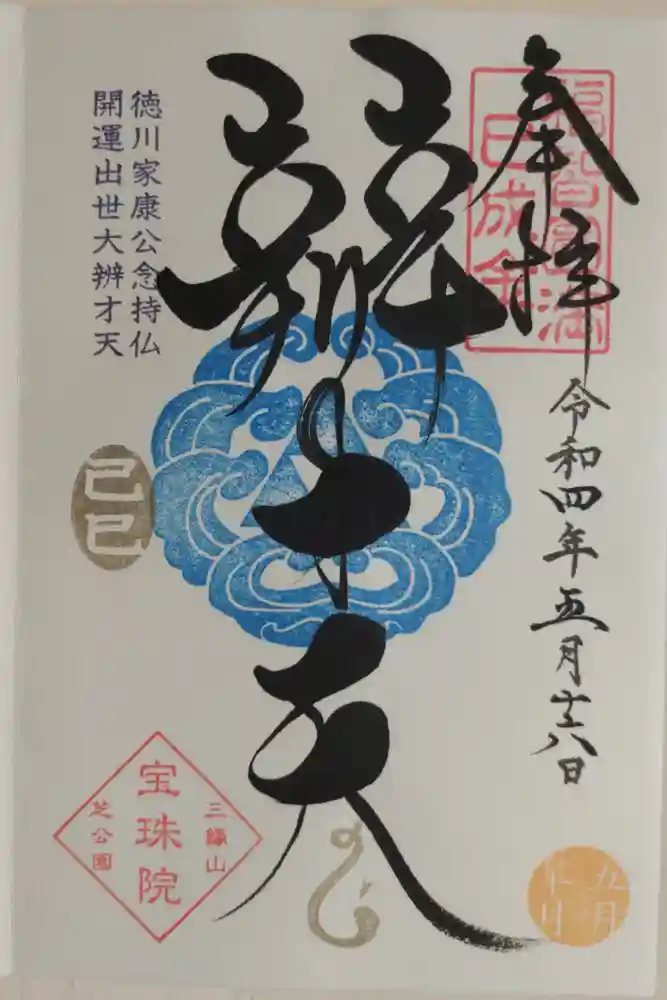 奉拝
福智圓満
巳成金
令和四年五月十六日
辨才天
徳川家康公念持仏
開運出世大辨才天
己巳
三縁山
宝珠院
芝公園
五月